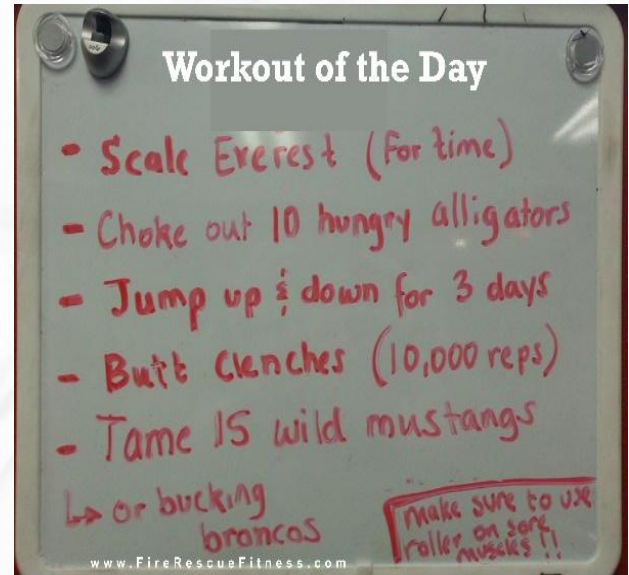 Workout of the Day
- Scale Everest (For time)
- Choke out 10 hungry alligators
- Jump up & down for 3 days
- Butt Clenches (10,000 reps)
- Tame 15 wild mustangs
↳ or bucking
broncos
make sure to use
roller on sore
muscles !!
www.FireRescueFitness.com